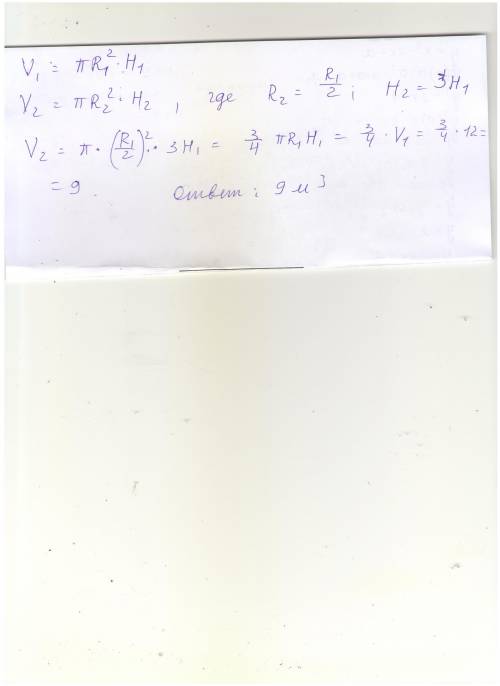 V₁ = πR₁²·H₁
V₂ = πR₂²·H₂ , где R₂ = R₁/2 ; H₂ = 3H₁
V₂ = π·(R₁/2)²·3H₁ = 3/4 πR₁H₁ = 3/4·V₁ = 3/4·12=
= 9. Ответ: 9 м³